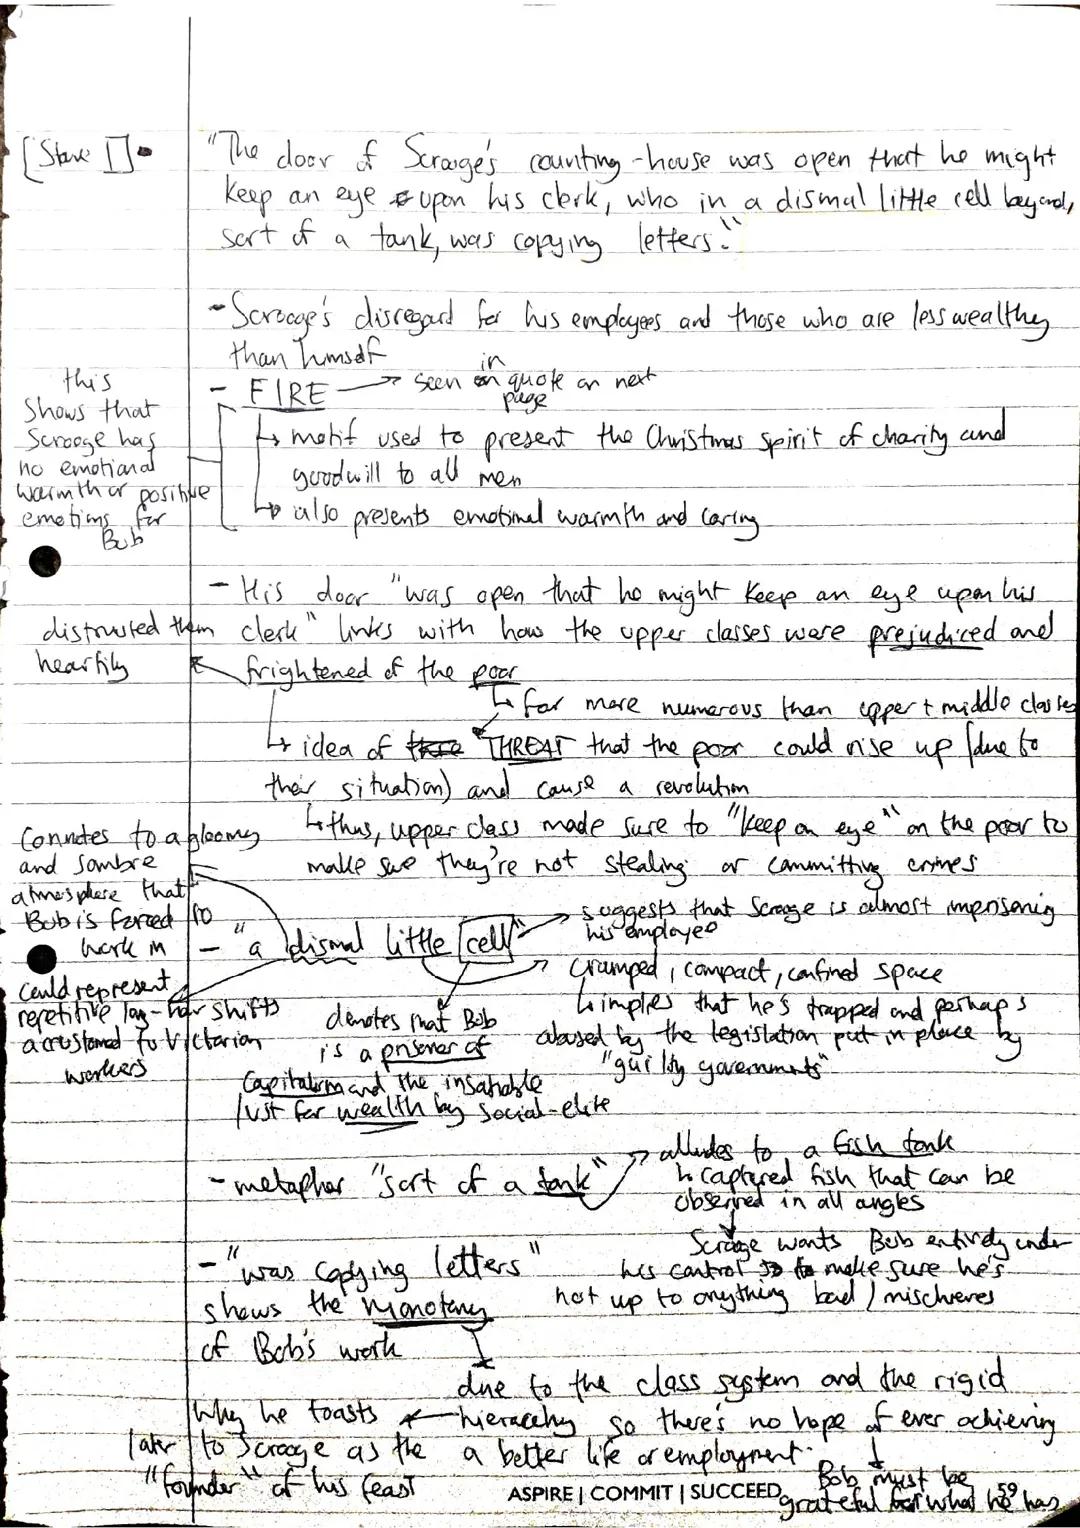 [Stave I]•
"The door of Scrooge's counting-house was open that he might
keep an eye upon his clerk, who in a dismal little cell beyond,
sort of a tank, was copying letters."
- Scrooge's disregard for his employees and those who are less wealthy
than himself
- FIRE → seen in quote on next
page
↳ motif used to present the Christmas spirit of charity and
goodwill to all men
↳ also presents emotional warmth and caring
this
shows that
Scrooge has
no emotional
warmth or positive
emotions for
Bob
- His door "was open that he might keep an eye upon his
clerk" links with how the upper classes were prejudiced and
frightened of the poor
distrusted them
heartily
↳ far more numerous than upper + middle classes
↳ idea of THREAT that the poor could rise up (due to
their situation) and cause a revolution
↳ thus, upper class made sure to "keep an eye" on the poor to
make sure they're not stealing or committing crimes
- "a dismal little cell"
Connotes to a gloomy
and sombre
atmosphere that
Bob is forced to
work in
could represent
repetitive long-hour shifts
accustomed to Victorian
workers
→ suggests that Scrooge is almost imprisoning
his employee
→ cramped, compact, confined space
↳ implies that he's trapped and perhaps
abused by the legislation put in place by
"guilty governments"
denotes that Bob
is a prisoner of
Capitalism and the insatiable
lust for wealth by social-elite
- metaphor "sort of a tank"
→ alludes to a fish tank
↳ captured fish that can be
observed in all angles
Scrooge wants Bob entirely under
his control to make sure he's
not up to anything bad / mischieves
- "was copying letters"
shows the monotony
of Bob's work
due to the class system and the rigid
hieracchy so there's no hope of ever achieving
a better life or employment.
Bob must be
grateful for what he has
Why he toasts
later to Scrooge as the
"founder" of his feast
ASPIRE | COMMIT | SUCCEED
59